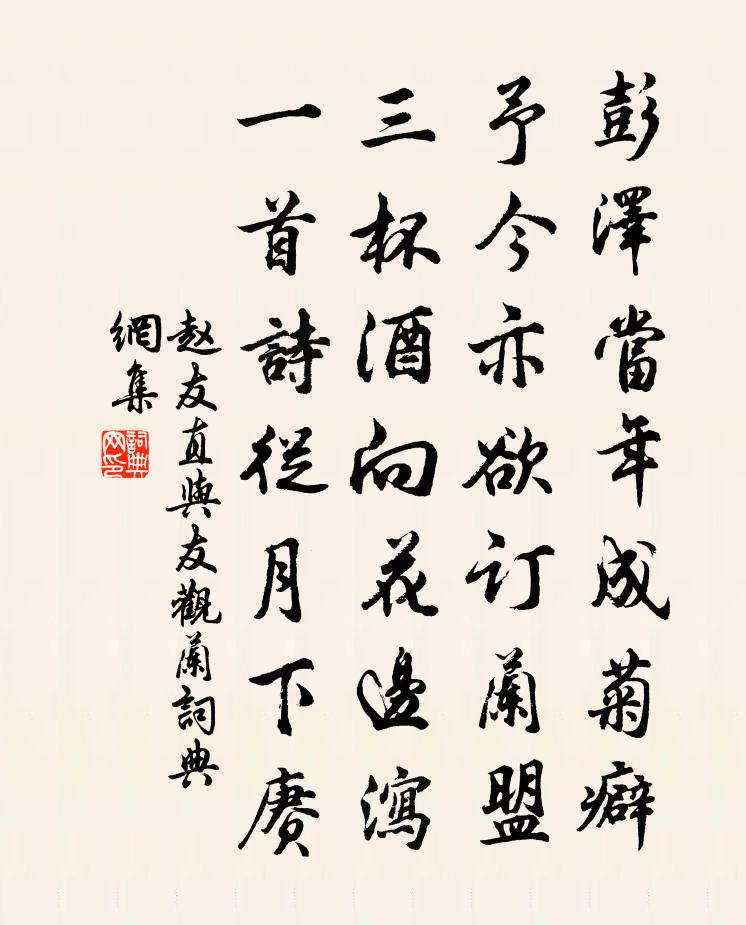 彭澤當年成菊癖
予今亦欲订蘭盟
三杯酒向花邊瀉
一首詩從月下赓
赵友直與友觀蘭詞典
網集
詞典
网印